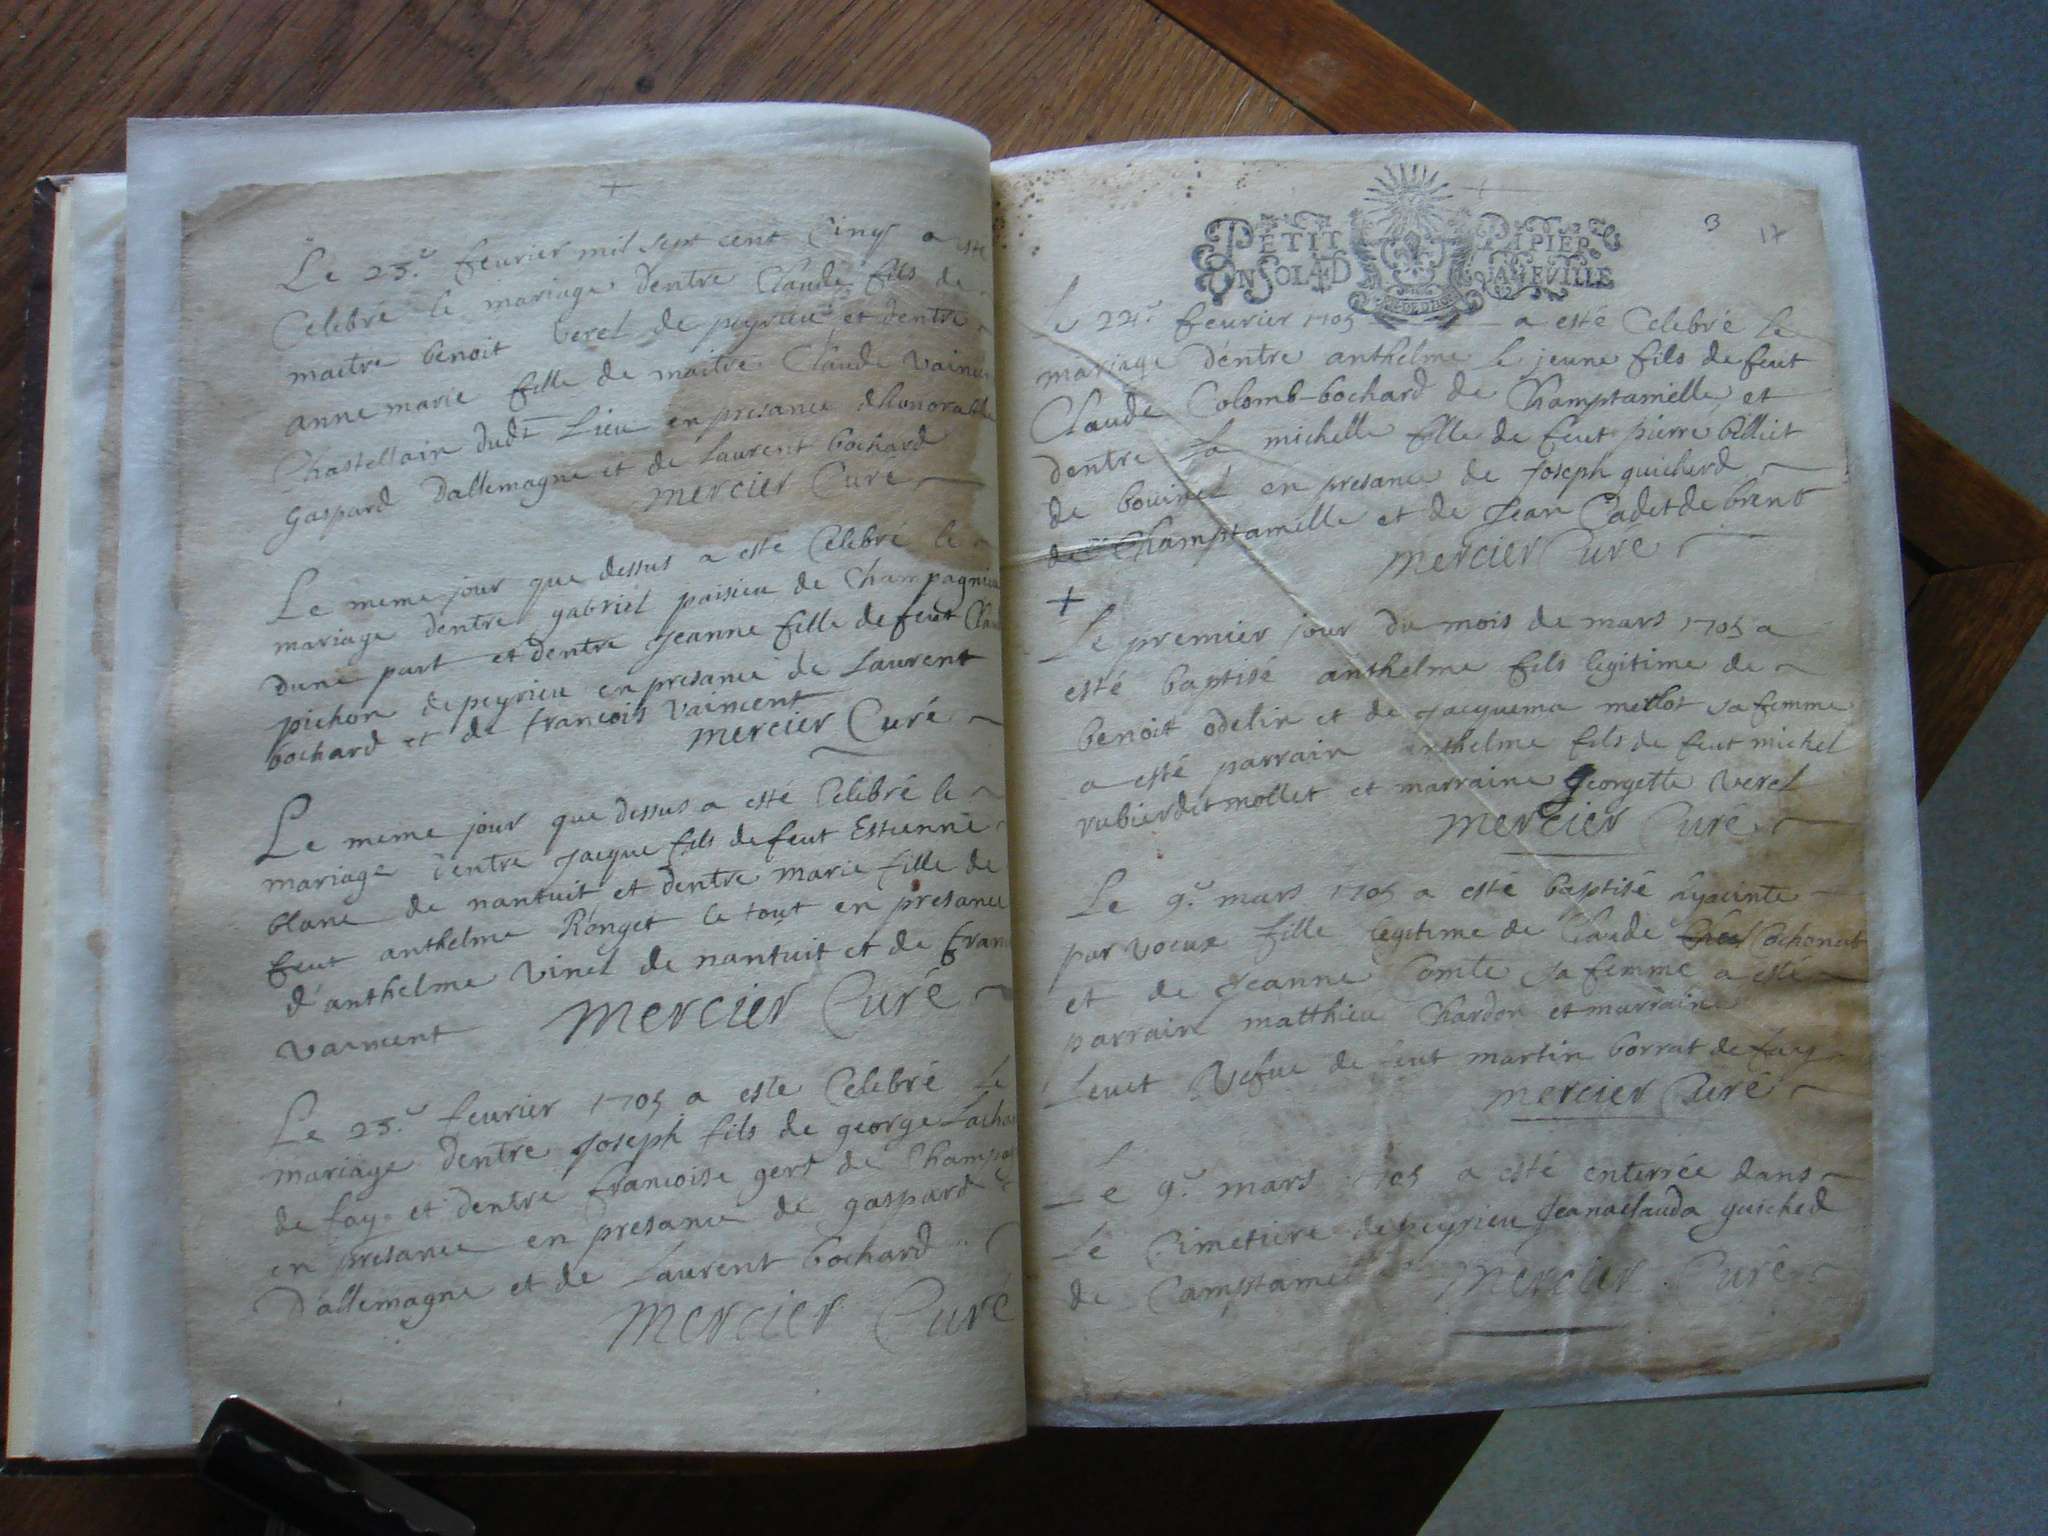 Le 23.e feurier mil sept cent Cinq a esté
Celebré le mariage dentre Claude fils de
maitre benoit verel de peyrieu et dentre
anne marie fille de maitre Claude Vaince
Chastellain dudt Lieu en presance dhonorable
Gaspard Dallemagne et de Laurent bochard
mercier Curé
Le meme jour que dessus a esté Celebré le
mariage dentre gabriel paisieu de Champagnieu
dune part et dentre Jeanne fille de feut Clau
pichon de peyrieu en presance de Laurent
bochard et de francois vaincent
mercier Curé
Le meme jour que dessus a esté Celebré le
mariage dentre Jacque fils de feut Estienne
blanc de nantuit et dentre marie fille de
feut anthelme Ronget le tout en presance
d'anthelme Vinel de nantuit et de fran
vaincent mercier Curé
Le 23.e feurier 1705 a este Celebré Le
mariage dentre Joseph fils de george Lacha
de fay et dentre francoise gers de Champa
en presance en presance de gaspard
Dallemagne et de Laurent bochard
mercier Curé
3 17
PETIT PAPIER
UN SOL 4 D LA FEVILLE
Le 24.e feurier 1705 a esté Celebré le
mariage dentre anthelme le jeune fils de feut
Claude Colomb-bochard de Champtamelle et
dentre La michelle fille de feut pierre billiet
de bouinel en presance de Joseph guicherd
de Champtamelle et de Jean Cadet de brent
mercier Curé
+
Le premier jour du mois de mars 1705 a
esté baptisé anthelme fils legitime de
benoit odelin et de Jacquema mellot sa femme
a esté parrain anthelme fils de feut michel
rubier dit mollet et marraine Georgette verel
mercier Curé
Le 9.e mars 1705 a esté baptisé âyacinte
par voeux fille legitime de Claude Cochonat
et de Jeanne Comte sa femme a esté
parrain matthieu Chardon et marraine
Leuet Vefue de feut martin borrat de fay
mercier Curé
Le 9.e mars 1705 a esté enterrée dans
Le Cimetiere de peyrieu Jeanaclauda guiched
de Camptamelle mercier Curé